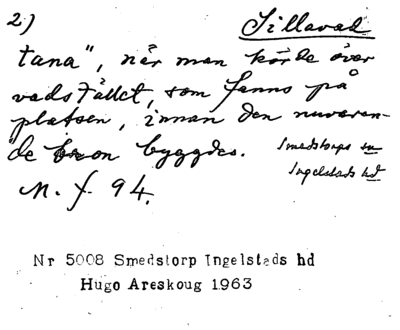 2)
Sillavad
tana", når man körde över
vadstället, som fanns på
platsen, innan den nuvaran-
de bron byggdes.
Smedstorps sn
Ingelstads hd
M. f. 94.
Nr 5008 Smedstorp Ingelstads hd
Hugo Areskoug 1963